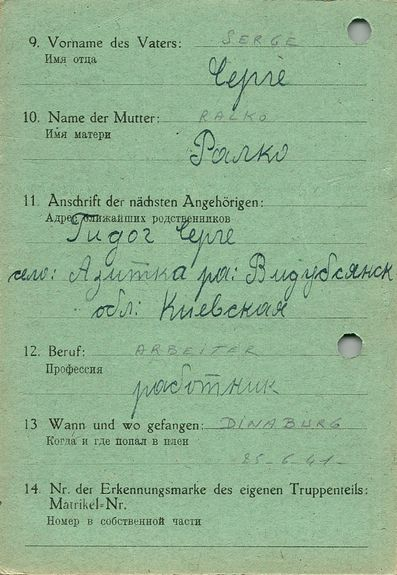 9. Vorname des Vaters: SERGE
Имя отца
Серге
10. Name der Mutter: RALKO
Имя матери
Ралко
11. Anschrift der nächsten Angehörigen:
Адрес ближайших родственников
Гидог Серге
село: Азитка ра: Видубсянск
обл: Киевская
12. Beruf: ARBEITER
Профессия
работник
13 Wann und wo gefangen: DINABURG
Когда и где попал в плен
25-6-41-
14. Nr. der Erkennungsmarke des eigenen Truppenteils:
Matrikel=Nr.
Номер в собственной части